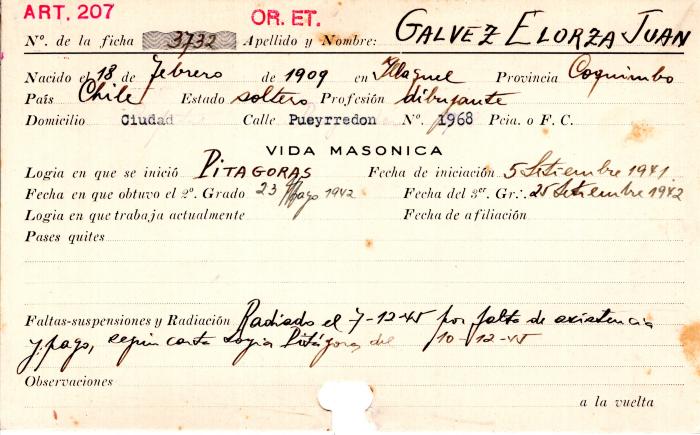 ART. 207
OR. ET.
Nº. de la ficha 3732 Apellido y Nombre: GALVEZ ELORZA JUAN
Nacido el 18 de febrero de 1909 en Illapel Provincia Coquimbo
País Chile Estado soltero Profesión dibujante
Domicilio Ciudad Calle Pueyrredon Nº. 1968 Pcia. o F. C.
VIDA MASONICA
Logia en que se inició PITAGORAS Fecha de iniciación 5 Setiembre 1941
Fecha en que obtuvo el 2º. Grado 23 Mayo 1942 Fecha del 3er. Gr.: 25 Setiembre 1942
Logia en que trabaja actualmente Fecha de afiliación
Pases quites
Faltas-suspensiones y Radiación Radiado el 7-12-45 por falta de existencia
y pago, según carta Logia Pitágoras del 10-12-45
Observaciones
a la vuelta